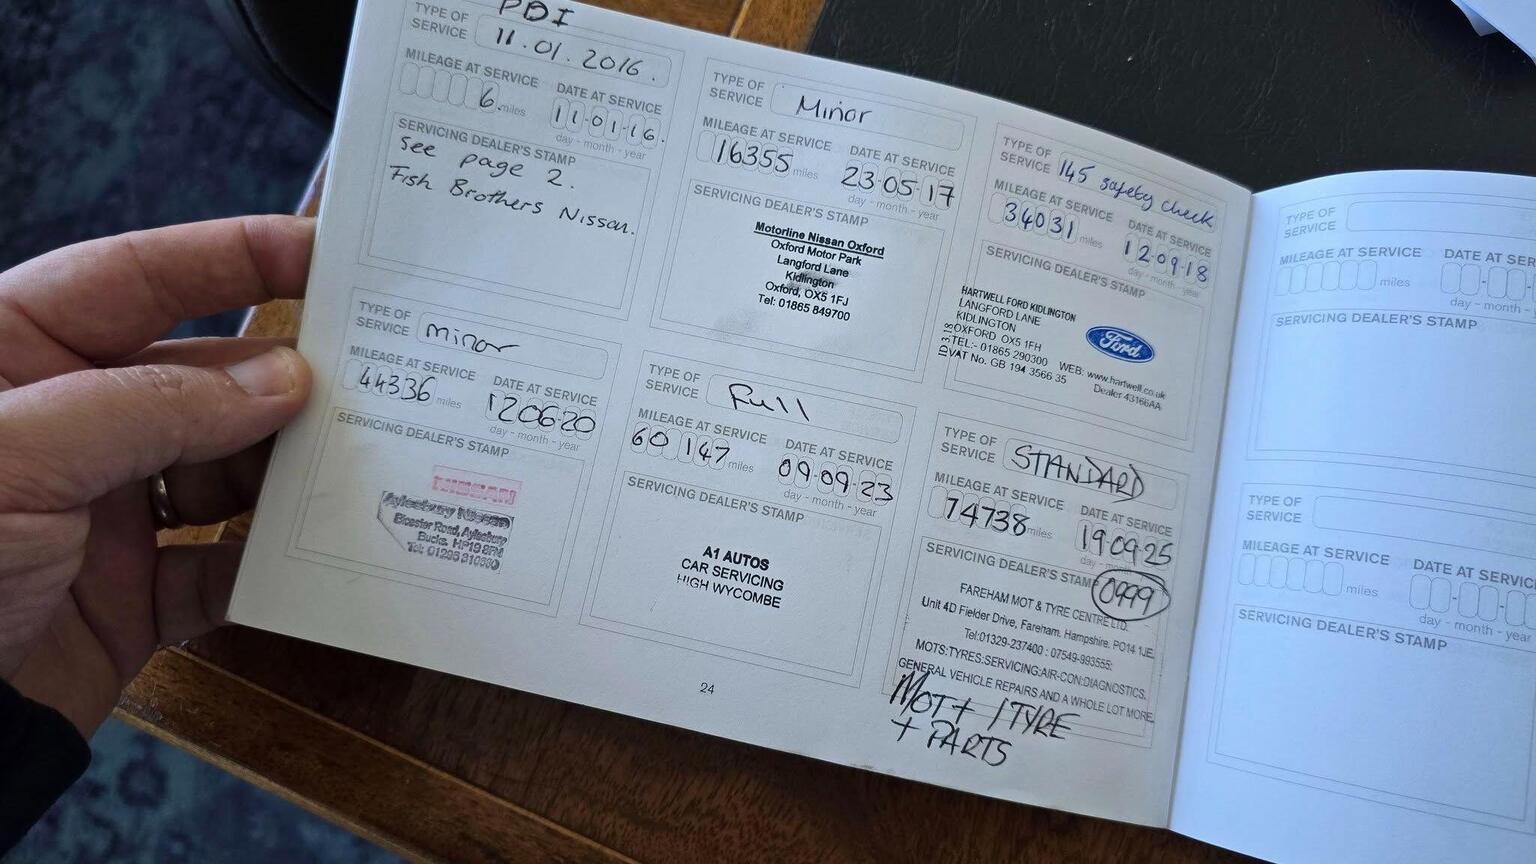 TYPE OF SERVICE PDI
11.01.2016.
MILEAGE AT SERVICE
6. miles
DATE AT SERVICE
11-01-16.
day - month - year
SERVICING DEALER'S STAMP
See page 2.
Fish Brothers Nissan.
TYPE OF SERVICE Minor
MILEAGE AT SERVICE
16355 miles
DATE AT SERVICE
23-05-17
day - month - year
SERVICING DEALER'S STAMP
Motorline Nissan Oxford
Oxford Motor Park
Langford Lane
Kidlington
Oxford, OX5 1FJ
Tel: 01865 849700
TYPE OF SERVICE 145 safety check
MILEAGE AT SERVICE
34031 miles
DATE AT SERVICE
12-09-18
day - month - year
SERVICING DEALER'S STAMP
HARTWELL FORD KIDLINGTON
LANGFORD LANE
KIDLINGTON
OXFORD OX5 1FH
TEL:- 01865 290300
VAT No. GB 194 3566 35
Ford
WEB: www.hartwell.co.uk
Dealer 43166AA
TYPE OF SERVICE minor
MILEAGE AT SERVICE
44336 miles
DATE AT SERVICE
120620
day - month - year
SERVICING DEALER'S STAMP
NISSAN
Aylesbury Nissan
Bicester Road, Aylesbury
Bucks. HP19 8
Tel: 01296
TYPE OF SERVICE Full
MILEAGE AT SERVICE
60147 miles
DATE AT SERVICE
09-09-23
day - month - year
SERVICING DEALER'S STAMP
A1 AUTOS
CAR SERVICING
HIGH WYCOMBE
TYPE OF SERVICE STANDARD
MILEAGE AT SERVICE
74738 miles
DATE AT SERVICE
190925
SERVICING DEALER'S STAMP
0999
FAREHAM MOT & TYRE CENTRE LTD.
Unit 4D Fielder Drive, Fareham. Hampshire. PO14 1JE.
Tel:01329-237400 : 07549-993555:
MOTS:TYRES:SERVICING:AIR-CON:DIAGNOSTICS.
GENERAL VEHICLE REPAIRS AND A WHOLE LOT MORE.
MOT + 1 TYRE
+ PARTS
24
TYPE OF SERVICE
MILEAGE AT SERVICE
miles
DATE AT SER
day - month -
SERVICING DEALER'S STAMP
TYPE OF SERVICE
MILEAGE AT SERVICE
miles
DATE AT SERVIC
day - month - y
SERVICING DEALER'S STAMP